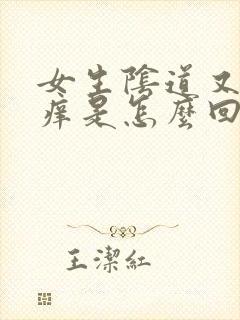 女生陰道又
痒是怎麼回
王潔紅